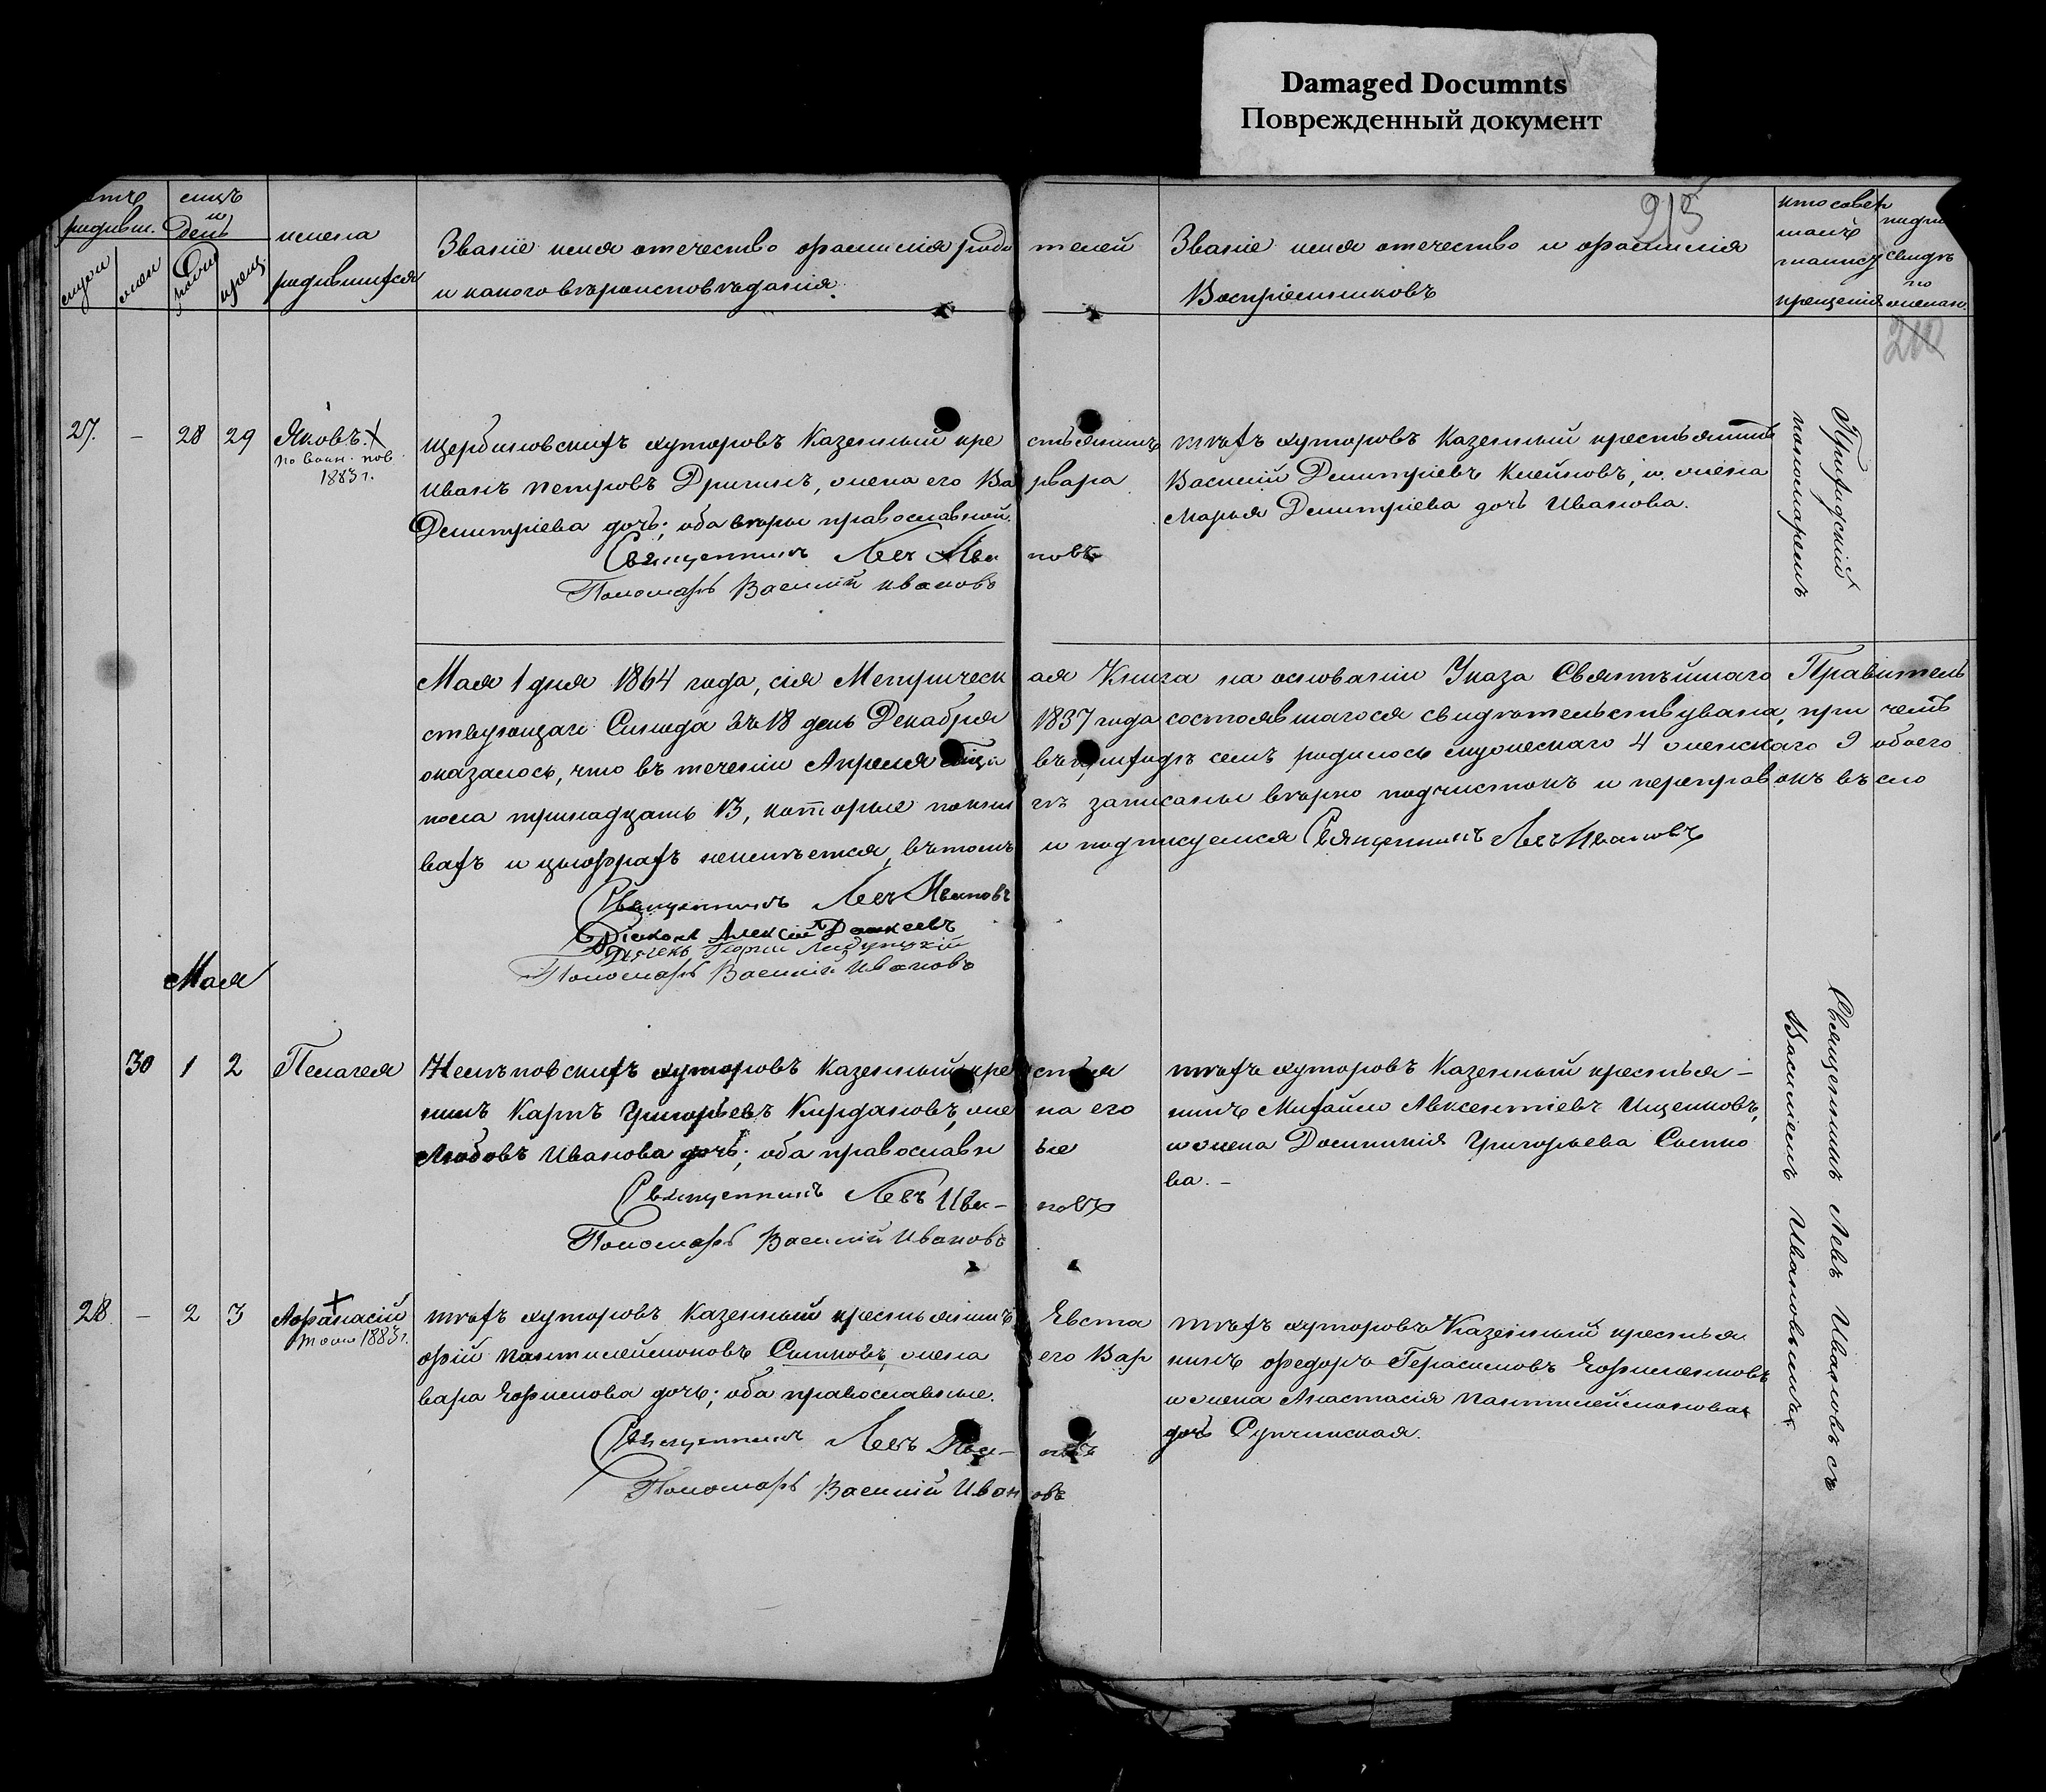 Damaged Documnts
Поврежденный документ
215
210
родивш.
день
имена
родившихся
Званіе имя отечество фамилія роди телей
и какого вѣроисповѣданія.
Званіе имя отечество и фамилія
Воспріемниковъ
кто совер
шалъ
таинст
крещенія
27. – 28 29 Яковъ.
по воин. пов
1883 г.
Щербиновскихъ хуторовъ Казенный кре стьянинъ
Иванъ Петровъ Дригинъ, жена его Ва рвара
Дмитріева дочь; оба вѣры православной.
Священникъ Левъ Ива новъ
Пономарь Василій Ивановъ
тѣхъ хуторовъ Казенный крестьянинъ
Василій Дмитріевъ Клейновъ, и жена
Марья Дмитріева дочь Иванова.
пономаремъ
Мая 1 дня 1864 года, сія Метрическ ая Книга на основаніи Указа Святѣйшаго Правитель
ствующаго Синода въ 18 день Декабря 1837 года состоявшагося свидѣтельствувана, при чемъ
оказалось, что въ теченіи Апреля въ приходѣ семъ родилось мужескаго 4 женскаго 9 обоего
пола тринадцать 13, которые записаны вѣрно подчистокъ и переправокъ въ сло
вахъ и цыфрахъ неимѣется, въ томъ и подписуемся Священникъ Левъ Ивановъ
Священникъ Левъ Ивановъ
Діаконъ Алексій
Пономарь Василій Ивановъ
Мая
30 1 2 Пелагея
хуторовъ Казенный кре стья
нинъ Карпъ Григорьевъ Кирдановъ, же на его
Любовъ Иванова дочь; оба православн ые
Священникъ Левъ Ива– новъ
Пономарь Василій Ивановъ
тѣхъ хуторовъ Казенный крестья–
нинъ Михаилъ Авксентіевъ Ищенковъ,
и жена Домникія Григорьева Сытко
ва. –
28 – 2 3 Афанасій
тоже 1883 г.
тѣхъ хуторовъ Казенный крестьянинъ Евста
фій Пантилеймоновъ Сытковъ, жена его Вар
вара Ефимова дочь; оба православные.
Священникъ Левъ
Пономарь Василій Иван овъ
тѣхъ хуторовъ Казенный крестья
нинъ Федоръ Герасимовъ Ефименковъ
и жена Анастасія Пантилеймонова
дочь
Священникъ Левъ Ивановъ съ
Василіемъ Ивановымъ